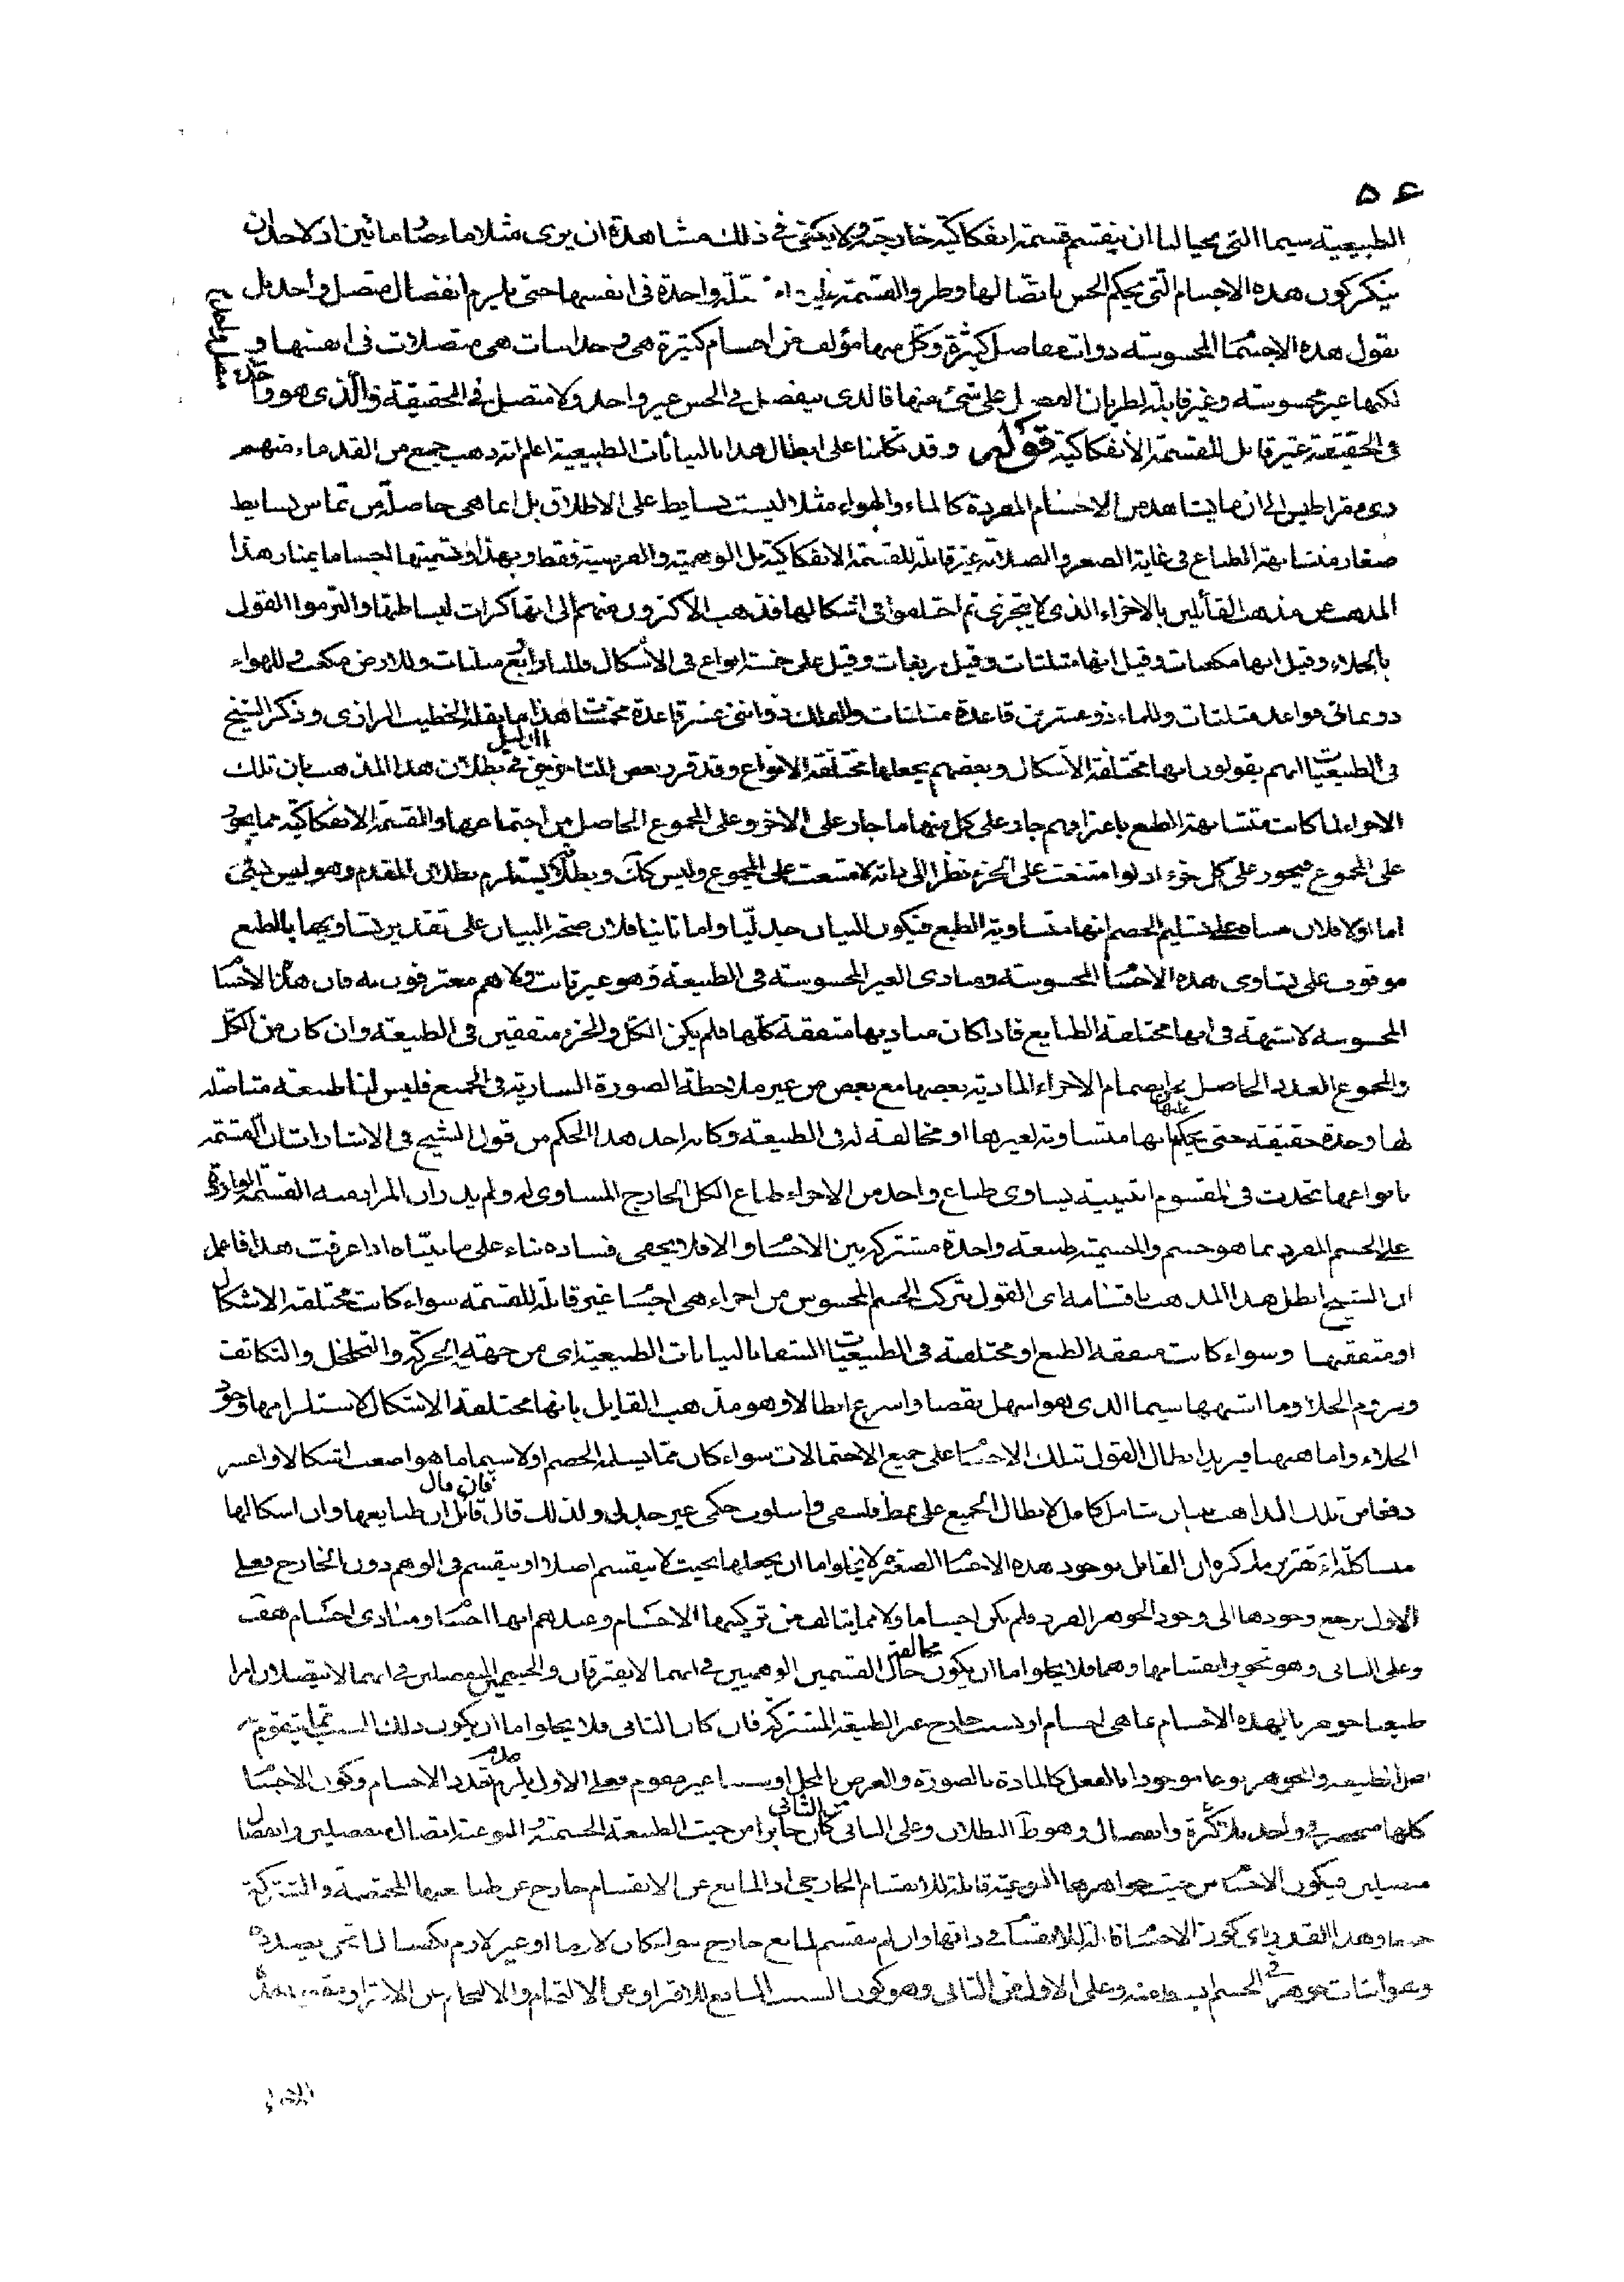 ٥٤
الطبيعية سيما التى يحيالنا ان ينقسم قسمة انفكاكية خارجية ولا يكفى فى ذلك مشاهدة ان يرى مثلا ماء صار مائين اذ لاحد ان
ينكر كون هذه الاجسام التى يحكم الحس باتصالها وطرو القسمة عليها واحدة فى انفسها حتى يلزم انفصال متصل واحد بل
نقول هذه الاجسام المحسوسة ذوات مفاصل كثيرة وكل منها مؤلف من اجسام كثيرة هى وحدانيات هى متصلات فى انفسها و
لكنها غير محسوسة وغير قابلة لطريان الفصل على شئ منها فالذى ينفصل فى الحس غير واحد ولا متصل فى الحقيقة والذى هو واحد متصل واحد
فى الحقيقة غير قابل للقسمة الانفكاكية قوله وقد تكلمنا على ابطال هذا بالبيانات الطبيعية اعلم انه ذهب جمع من القدماء منهم
ذيمقراطيس الى ان ما يشاهد من الاجسام المفردة كالماء والهواء مثلا ليست بسايط على الاطلاق بل انما هى حاصلة من تماس بسايط
صغار متشابهة الطباع فى غاية الصغر والصلابة غير قابلة للقسمة الانفكاكية بل الوهمية والفرضية فقط وبهذا وتسميتها اجساما يمتاز هذا
المذهب عن مذهب القائلين بالاجزاء الذى لا يتجزى ثم اختلفوا فى اشكالها فذهب الاكثرون منهم الى انها كرات لبساطتها والتزموا القول
بالخلاء وقيل انها مكعبات وقيل انها مثلثات وقيل مربعات وقيل على خمسة انواع فى الاشكال فللنار اربع مثلثات وللارض مكعب وللهواء
ذو ثمانى قواعد مثلثات وللماء ذو عشرين قاعدة مثلثات وللفلك ذو اثنى عشر قاعدة مخمسات هذا ما نقله الخطيب الرازى وذكر الشيخ
فى الطبيعيات انهم يقولون انها مختلفة الاشكال وبعضهم يجعلها مختلفة الانواع وقد قرر بعض المتاخرين فى بطلان هذا المذهب بان تلك
الاجزاء لما كانت متشابهة الطبع باعترافهم جاز على كل منها ما جاز على الاخر وعلى المجموع الحاصل من اجتماعها والقسمة الانفكاكية مما يجوز
على المجموع فيجوز على كل جزء اذ لو امتنعت على الجزء نظرا الى ذاته لامتنعت على المجموع وليس كك وبطلان يستلزم بطلان المقدم وهو ليس بشئ
اما اولا فلان مبناه على تسليم الخصم انها متساوية الطبع فيكون البيان جدليا واما ثانيا فلان صحة البيان على تقدير تساويها بالطبع
موقوف على تساوى هذه الاجسام المحسوسة ومبادى الغير المحسوسة فى الطبيعة وهو غير ثابت ولا هم معترفون به فان هذه الاجسام
المحسوسة لا شبهة فى انها مختلفة الطبايع فاذا كان مباديها متفقة كلها فلم يكن الكل والجزء متفقين فى الطبيعة وان كان من الكل
والمجموع العدد الحاصل بانضمام الاجزاء المادية بعضها مع بعض من غير ملاحظة الصورة السارية فى الجميع فليس لنا طبيعة متاصلة
لها وحدة حقيقة حتى يحكم عليها انها متساوية لغيرها او مخالفة له فى الطبيعة وكانه اخذ هذا الحكم من قول الشيخ فى الاشارات ان القسمة
بانواعها تحدث فى المقسوم اثنينية يساوى طباع واحد من الاجزاء طباع الكل الخارج المساوى له ولم يدر ان المراد منه القسمة الواردة
على الجسم المفرد بما هو جسم والجسمية طبيعة واحدة مشتركة بين الاجسام والا فلا يخفى فساده بناء على ما بيناه اذا عرفت هذا فاعلم
ان الشيخ ابطل هذا المذهب باقسامه اى القول بتركب الجسم المحسوس من اجزاء هى اجسام غير قابلة للقسمة سواء كانت مختلفة الاشكال
او متفقتها وسواء كانت متفقة الطبع او مختلفة فى الطبيعيات استعانا بالبيانات الطبيعية اى من جهة الحركة والتخلخل والتكاثف
ولزوم الخلا وما اشبهها سيما الذى هو اسهل نقضا واسرع ابطالا وهو مذهب القايل بانها مختلفة الاشكال لاستلزامها وجود
الخلاء واما ههنا فيريد ابطال القول بتلك الاجسام على جميع الاحتمالات سواء كان مما يسلمه الخصم اولا سيما ما هو اصعب اشكالا واعسر
دفعا من تلك المذاهب ببيان شامل كامل لابطال الجميع على نمط فلسفى واسلوب حكمى غير جدلى ولذلك قال فان قال قائل ان طبايعها وان اشكالها
متشاكلة اه تقرير ما ذكره ان القائل بوجود هذه الاجسام الصغيرة لا يخلوا اما ان يجعلها بحيث لا ينقسم اصلا او ينقسم فى الوهم دون الخارج فعلى
الاول يرجع وجودها الى وجود الجوهر الفرد ولم يكن اجساما ولا مما يتالف من تركيبها الاجسام وعندهم انها اجسام ومبادى اجسام هف
وعلى الثانى وهو تجويز انقسامها وهما فلا يخلوا اما ان يكون مخالفة حال القسمين الوهميين فى انهما لا يفترقان والجسمين المنفصلين فى انهما لا يتصلان امرا
طبيعيا جوهريا لهذه الاجسام بما هى اجسام او بسبب خارج عن الطبيعة المشتركة فان كان الثانى فلا يخلوا اما ان يكون ذلك السبب مما يتقوم به
اصل الطبيعة والجوهر نوعا موجودا بالفعل كالمادة بالصورة والعرض بالمحل او سببا غير مقوم فعلى الاول يلزم عدم تعدد الاجسام وكون الاجسام
كلها منحصرة فى واحد بلا تكثرة وانفصال وهو ظ البطلان وعلى الثانى من الثانى كان جايزا من حيث الطبيعة الجسمية والنوعية اتصال منفصلين وانفصال
متصلين فيكون الاجسام من حيث جواهرها النوعية قابلة للانقسام الخارجى اذ المانع عن الانقسام خارج عن طبايعها المختصة والمشتركة
وهذا القدر اى كون الاجسام قابلة للانقسام فى ذاتها وان لم ينقسم لمانع خارج سواء كان لازما او غير لازم يكفينا لما نحن بصدده
وهو اثبات جوهر فى الجسم وعلى الاول من الثانى وهو كون السبب المانع للافتراق عن الالتيام والالتحام عن الافتراق